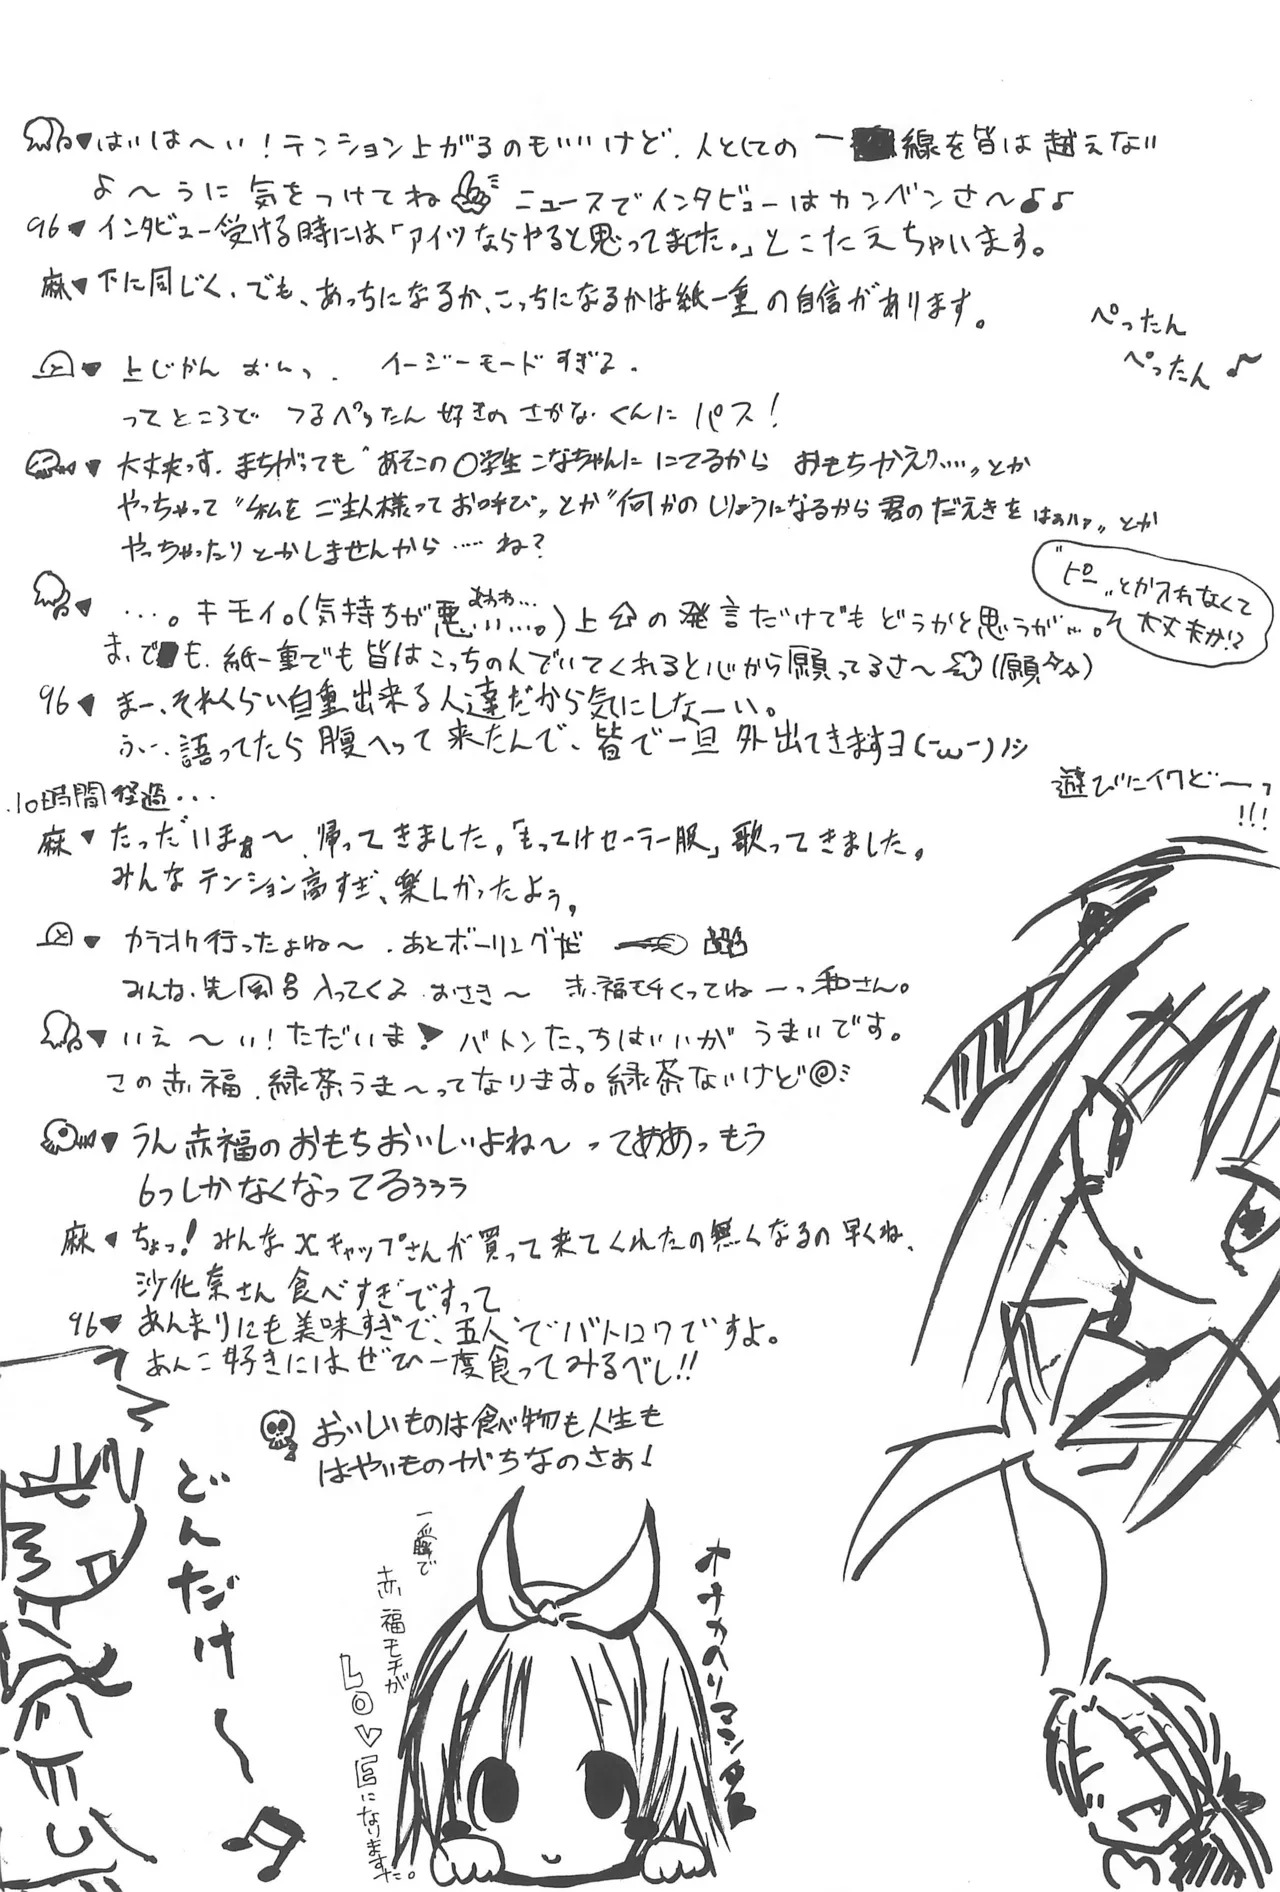 ♥はいは〜い!テンション上がるのもいいけど、人としての一線を皆は越えない
よ〜うに気をつけてね ニュースでインタビューはカンベンさ〜♪♪
96♥インタビュー受ける時には「アイツならやると思ってました。」とこたえちゃいます。
麻♥下に同じく、でも、あっちになるか、こっちになるかは紙一重の自信があります。
ぺったん
ぺったん♪
♥上じかん イージーモードすぎる.
ってところで つるぺったん好きのさかなくんにパス!
♥大丈夫っす.まちがっても"あそこの〇学生こなちゃんににてるから おもちかえり……"とか
やっちゃって"私をご主人様ってお呼び"とか"何かのじょうになるから君のだえきをはぁハァ"とか
やっちゃったりとかしませんから……ね?
"ピー"とか入れなくて
大丈夫か!?
♥…。キモイ。(気持ちが悪いい…。)上公の発言だけでもどうかと思うが…。
あわわ…
ま、でも、紙一重でも皆はこっちの人でいてくれると心から願ってるさ〜(願)
96♥まー、それくらい自重出来る人達だから気にしなーい。
ふー、語ってたら腹へって来たんで、皆で一旦外出てきますヨ(-ω-)ノシ
遊びにイクどーっ
!!!
.10時間経過...
麻♥たっだいまぁ〜、帰ってきました。「もってけセーラー服」歌ってきました。
みんなテンション高すぎ、楽しかったよぅ。
♥カラオケ行ったよね〜.あとボーリングだ
みんな、先風呂入ってくる.おさき〜 赤福モチくってねーっ和さん。
♥いえ〜い!ただいま♥バトンたっちはいいがうまいです。
この赤福、緑茶うま〜ってなります。緑茶ないけど@
♥うん赤福のおもちおいしいよね〜ってああっもう
6つしかなくなってるぅぅぅ
麻♥ちょっ!みんなXキャップさんが買って来てくれたの無くなるの早くね、
沙化奈さん食べすぎですって
96♥あんまりにも美味すぎで、五人でバトロワですよ。
あんこ好きにはぜひ一度食ってみるべし!!
おいしいものは食べ物も人生も
はやいものがちなのさぁ♩
どんだけ〜♫
一瞬で
赤福モチが
LO♡Eになりますた。
オナカヘリマシタ